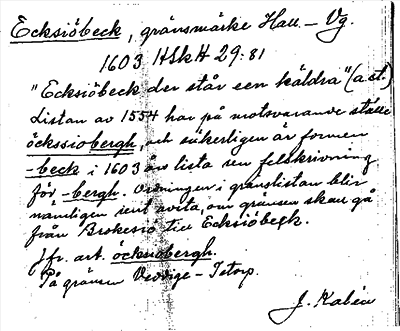 Ecksiöbeck, gränsmärke Hall. – Vg.
1603 HSkH 29:81
"Ecksiöbeck der står een käldra" (a.st.)
Listan av 1554 har på motsvarande ställe
öckssiobergh, och säkerligen är formen
-beck i 1603 års lista en felskrivning
för -bergh. Ordningen i gränslistan blir
nämligen rent avita, om gränsen skall gå
från Brokesiö till Ecksiöbeck.
Jfr. art. öcksiobergh.
På gränsen Veddige - Istorp.
J. Kalén